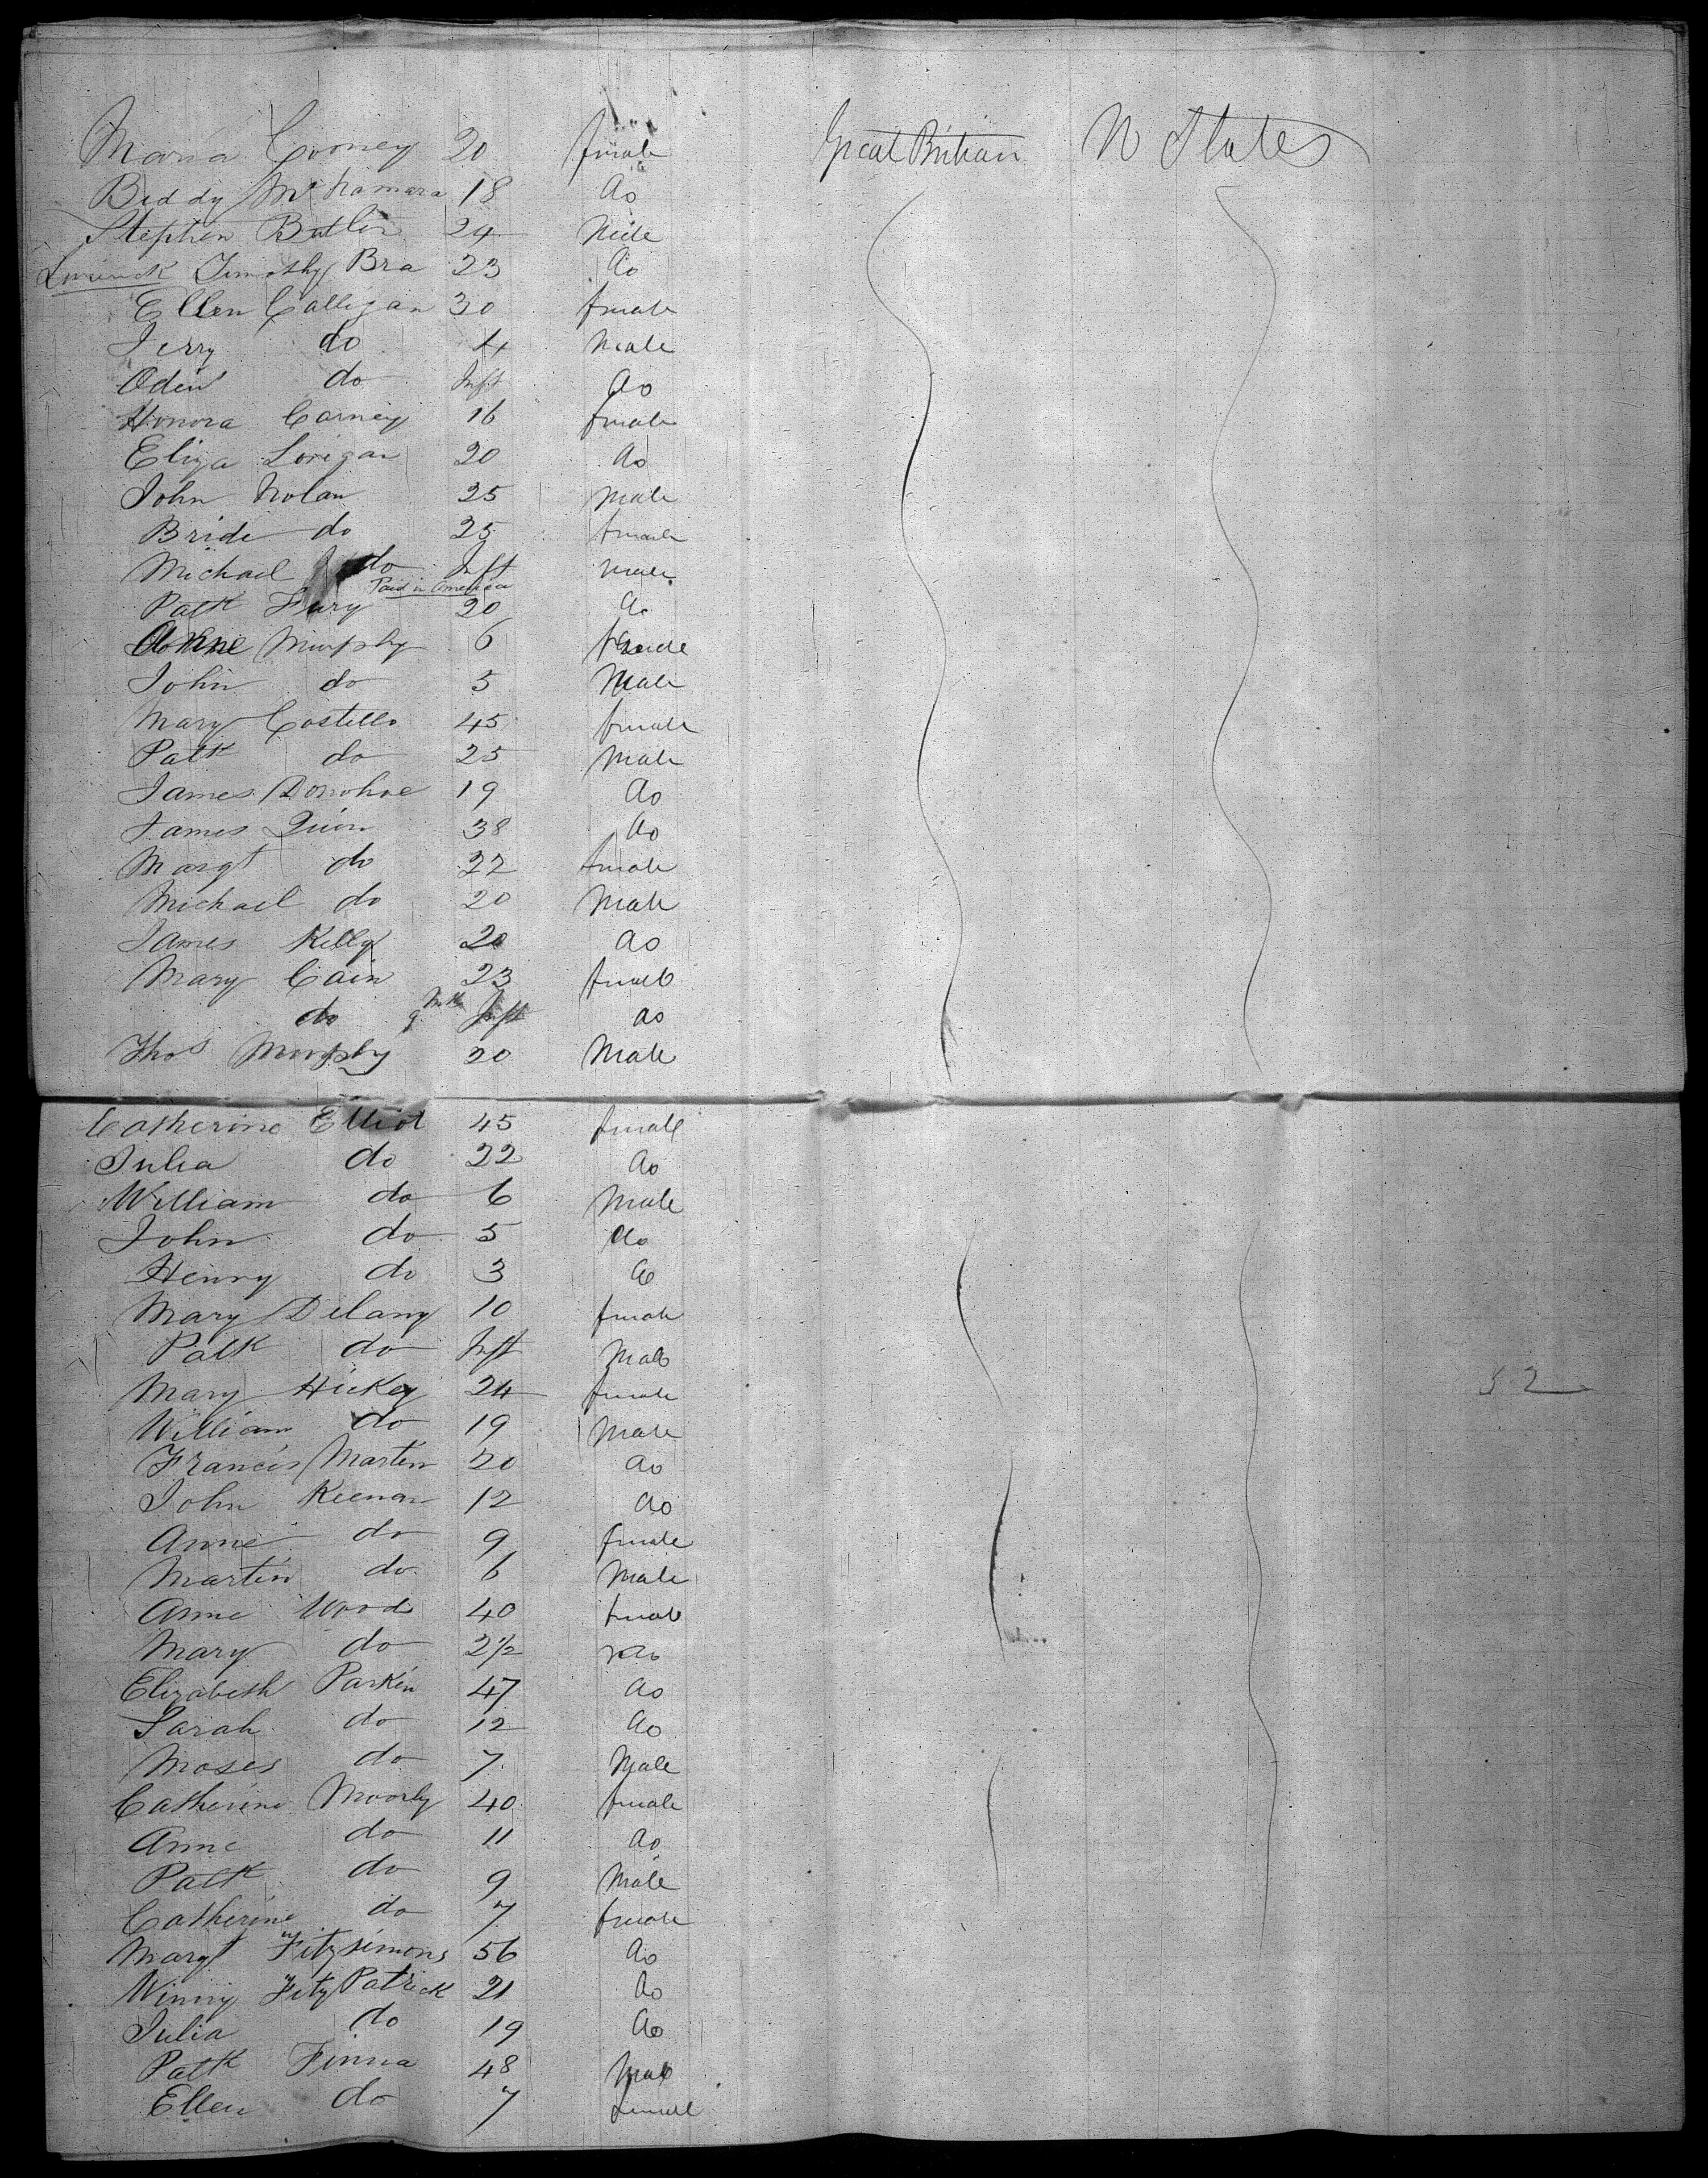 Maria Cooney 20 female Great Britian U States
Biddy McNamara 18 do
Stephen Butler 24 Male
Limerick Timothy Bra 23 do
Ellen Calligan 30 female
Jerry do 4 Male
Oden do Inft do
Honora Carney 16 female
Eliza Lorigan 20 do
John Nolan 25 Male
Bride do 25 female
Michael do Inft Male
Paid in America
Patk Fury 20 do
Anne Murphy 6 female
John do 5 Male
Mary Costello 45 female
Patk do 25 Male
James Donohoe 19 do
James Quin 38 do
Margt do 22 female
Michael do 20 Male
James Kelly 20 do
Mary Cain 23 female
do 9 mths Inft do
Thos Murphy 20 Male
Catherine Elliot 45 female
Julia do 22 do
William do 6 Male
John do 5 do
Henry do 3 do
Mary Delany 10 female
Patk do Inft Male
Mary Hickey 24 female 52
William do 19 Male
Francis Martin 20 do
John Keenan 12 do
Anne do 9 female
Martin do 6 Male
Anne Woods 40 female
Mary do 2½ do
Elizabeth Parkin 47 do
Sarah do 12 do
Moses do 7 Male
Catherine Moorly 40 female
Anne do 11 do
Patk do 9 Male
Catherine do 7 female
Margt Fitzsimons 56 do
Winny FitzPatrick 21 do
Julia do 19 do
Patk Finna 48 Male
Ellen do 7 female